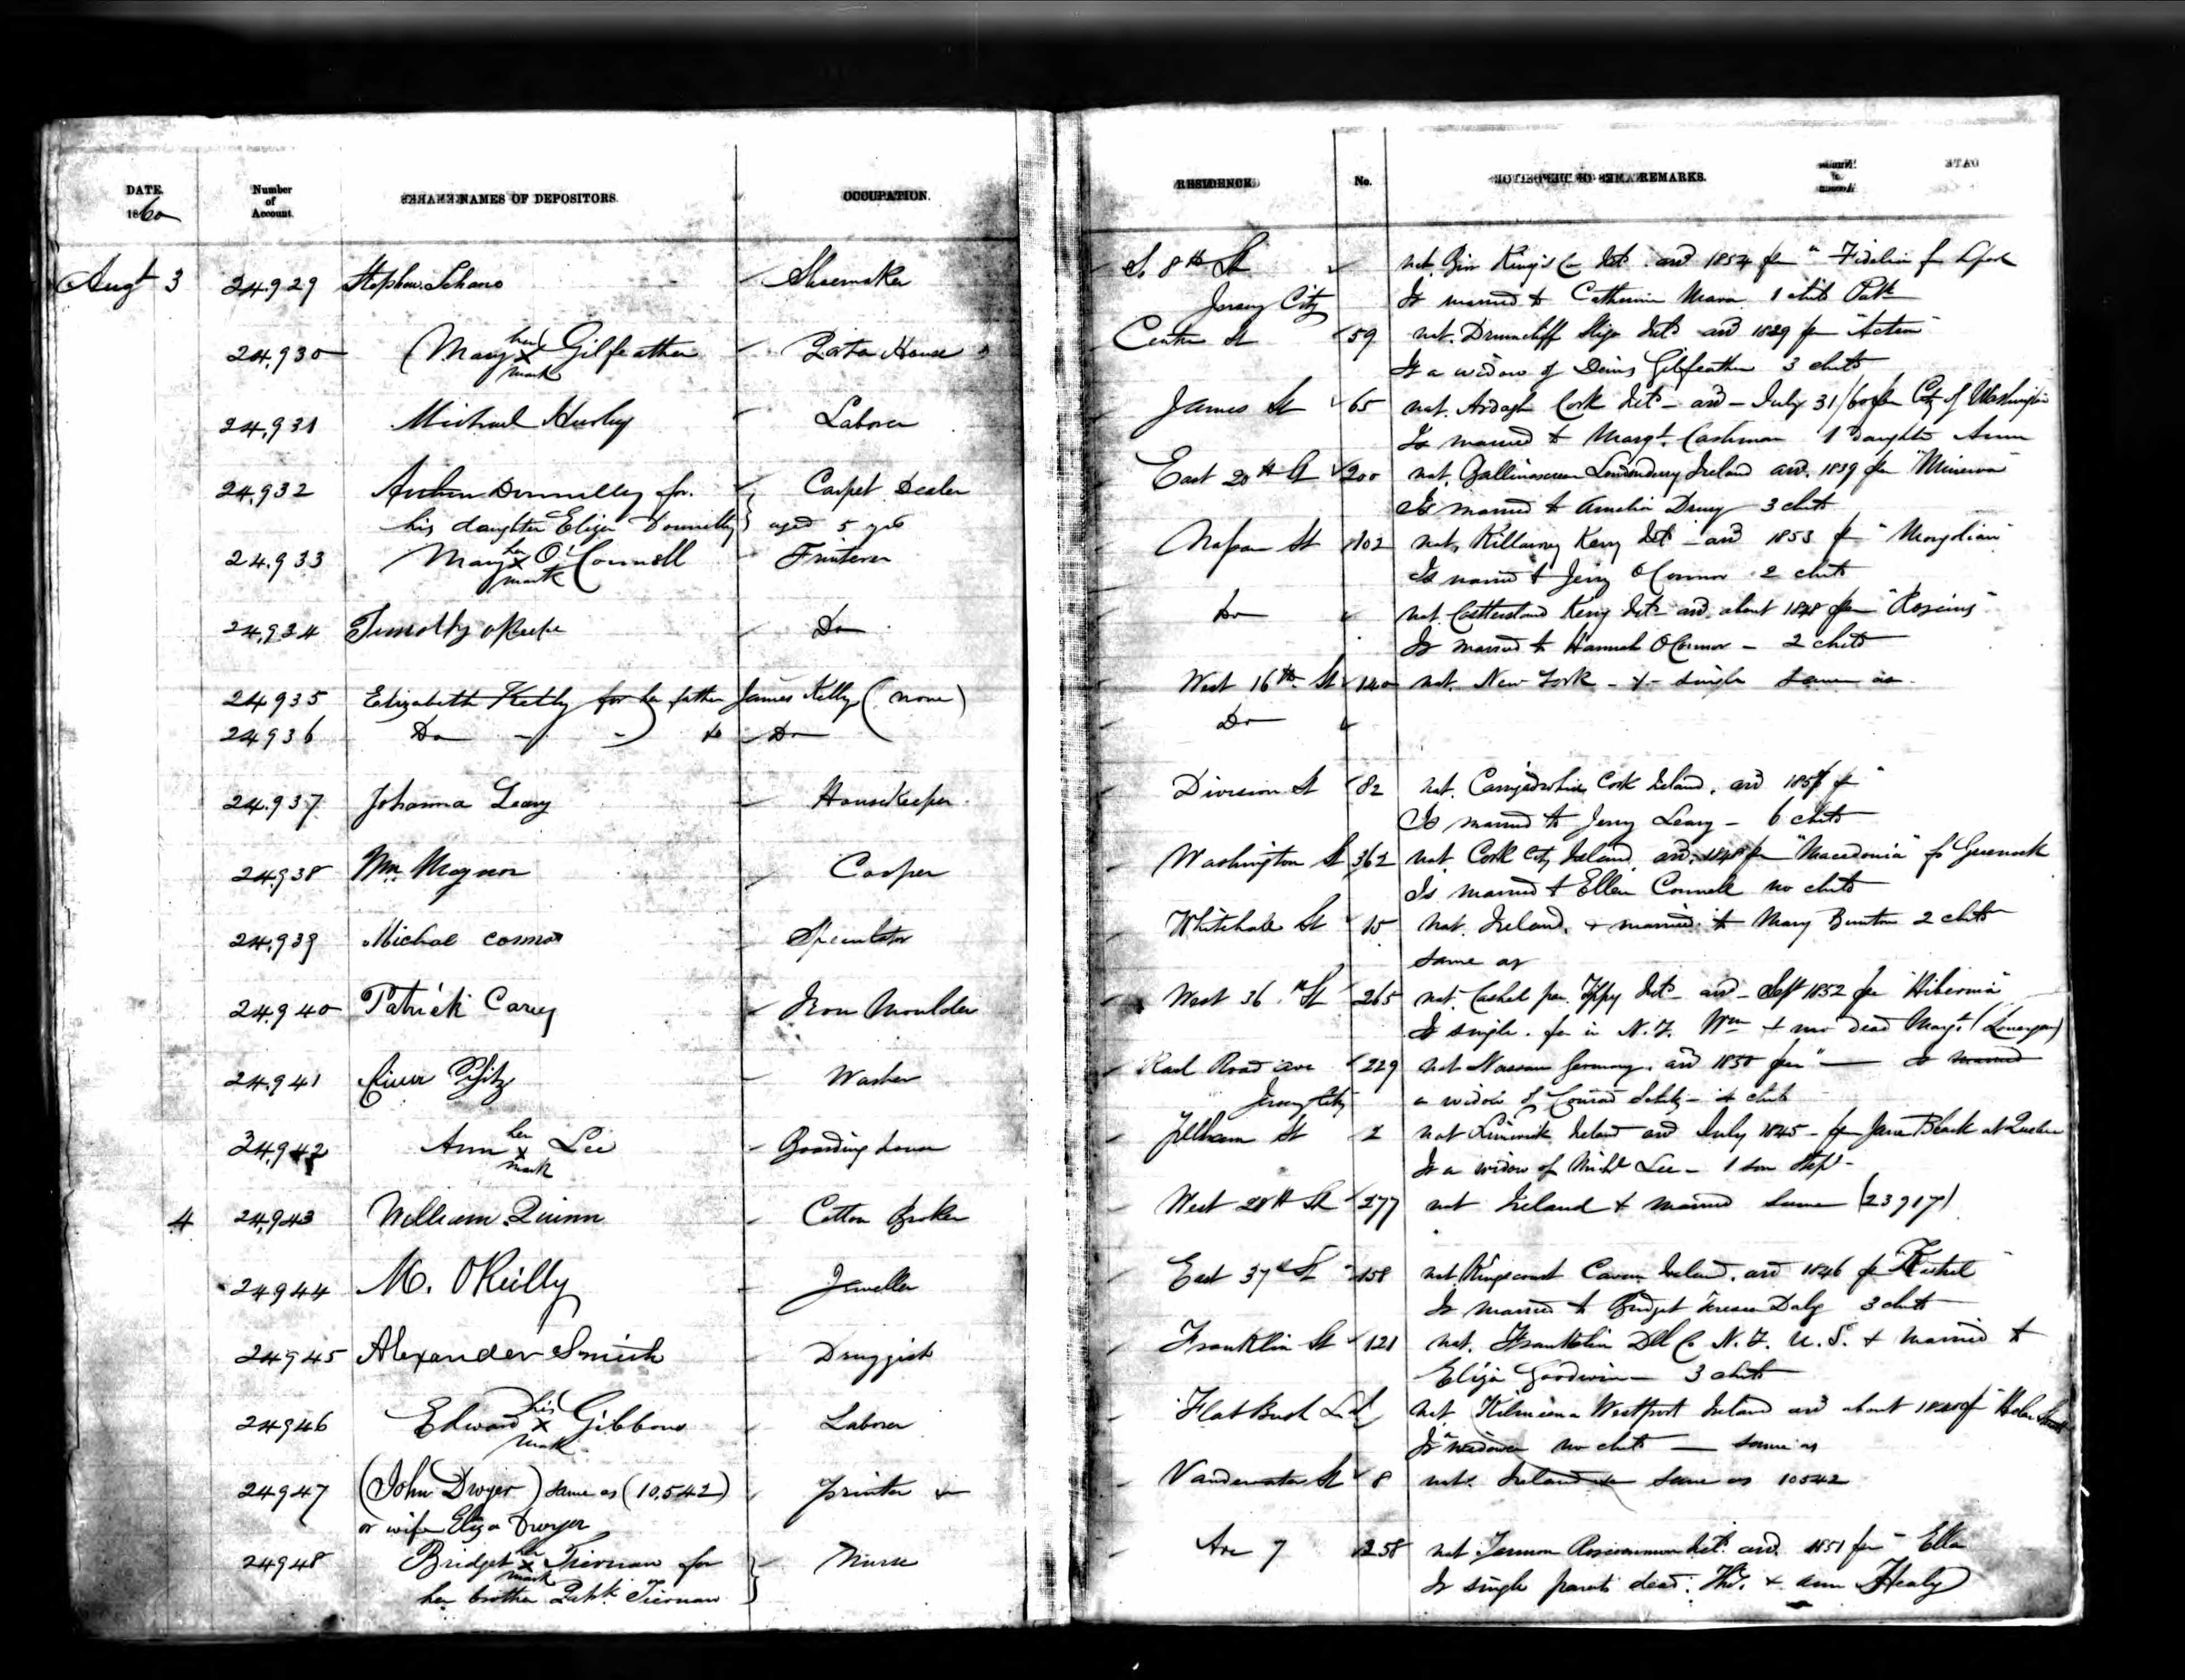 DATE. Number of Account. NAMES OF DEPOSITORS. OCCUPATION. RESIDENCE. No. REMARKS.
1860
Augt 3 24.929 Stephen Shoemaker So 8th St nat. Birr King's Co Ird. arrd 1854 per "Fidelia fr Lpool
Jersey City Is married to Catherine Mara 1 child Patk
24,930 Mary her x mark Gilfeather Porter House Centre St 59 nat. Drumcliff Sligo Ird arrd 1829 per "Action"
Is a widow of Denis Gilfeather 3 childs
24,931 Michael Hurley Laborer James St 65 nat. Ardagh Cork Ird - arrd - July 31/60 per City of Washington
Is married to Margt. Cashman 1 daughter Ann
24,932 Donnelly for. Carpet Dealer East 20th St 200 nat. Londonderry Ireland arrd. 1839 per "Minerva"
his daughter Eliza Donnelly aged 5 yrs Is married to Amelia 3 childs
24.933 Mary her x mark O'Connell Nassau St 102 nat. Killarney Kerry Ird - arrd 1853 pr "Mongolian"
Is married to Jerry O'Connor 2 childs
24,934 Timothy oKeefe Do Do nat Castleisland Kerry Ird - arrd about 1848 per "Roscius"
Is married to Hannah O'Connor - 2 childs
24,935 Elizabeth Kelly for her father James Kelly (none) West 16th St 140 nat. New York - + - single same as
24936 Do Do Do Do
24.937 Johanna Leary HouseKeeper Division St 82 nat. Cork Ireland. arrd pr "
Is married to Jerry Leary - 6 childs
24.938 Wm. Cooper Washington St 362 nat. Cork City Ireland. arrd. 1848 pr "Macedonia" fr Greenock
Is married to Ellen Connell no childs
24,939 Michael Speculator Whitehall St 15 nat. Ireland. + married to Mary 2 childs
same as
24,940 Patrick Carey Iron Moulder West 36th St 265 nat. Cashel Tippy Ird - arrd - Sept 1852 per "Hibernia"
Is single. fr in N.Y. Wm + mo dead Margt. (Lonergan)
24.941 Washer Rail Road ave 229 nat Nassau Germany. arrd 1850 per " Is married
Jersey City a widow of Conrad 4 childs
24,942 Ann her x mark Lee Boarding house Pelham St 2 nat Limerick Ireland arrd July 1845 - per Jane Black at Quebec
Is a widow of Michl Lee - 1 son Stepn -
4 24,943 William Quinn Cotton Broker West 28th St 277 nat Ireland + married same (23917)
24944 M. OReilly Jeweller East 37th St 158 nat. Kingscourt Cavan Ireland. arrd 1846 pr
Is married to Bridget Teresa Daly 3 childs
24945 Alexander Smith Druggist Franklin St 121 nat. Franklin Del Co N.Y. U.S. + married to
Eliza Goodwin 3 childs
24946 Edward his x mark Gibbons Laborer FlatBush L.I. nat. Kilmeena Westport Ireland arrd about pr "Helen
Is a widower no childs — same as
24947 (John Dwyer) same as (10,542) printer Vandewater St 8 nat. Ireland same as 10542
or wife Eliza Dwyer
24948 Bridget her x mark Tiernan for Nurse Ave 7 258 nat Roscommon Ird. arrd. 1851 per "Ella
her brother Patk. Tiernan Is single parents dead. Ths. + Ann Healy